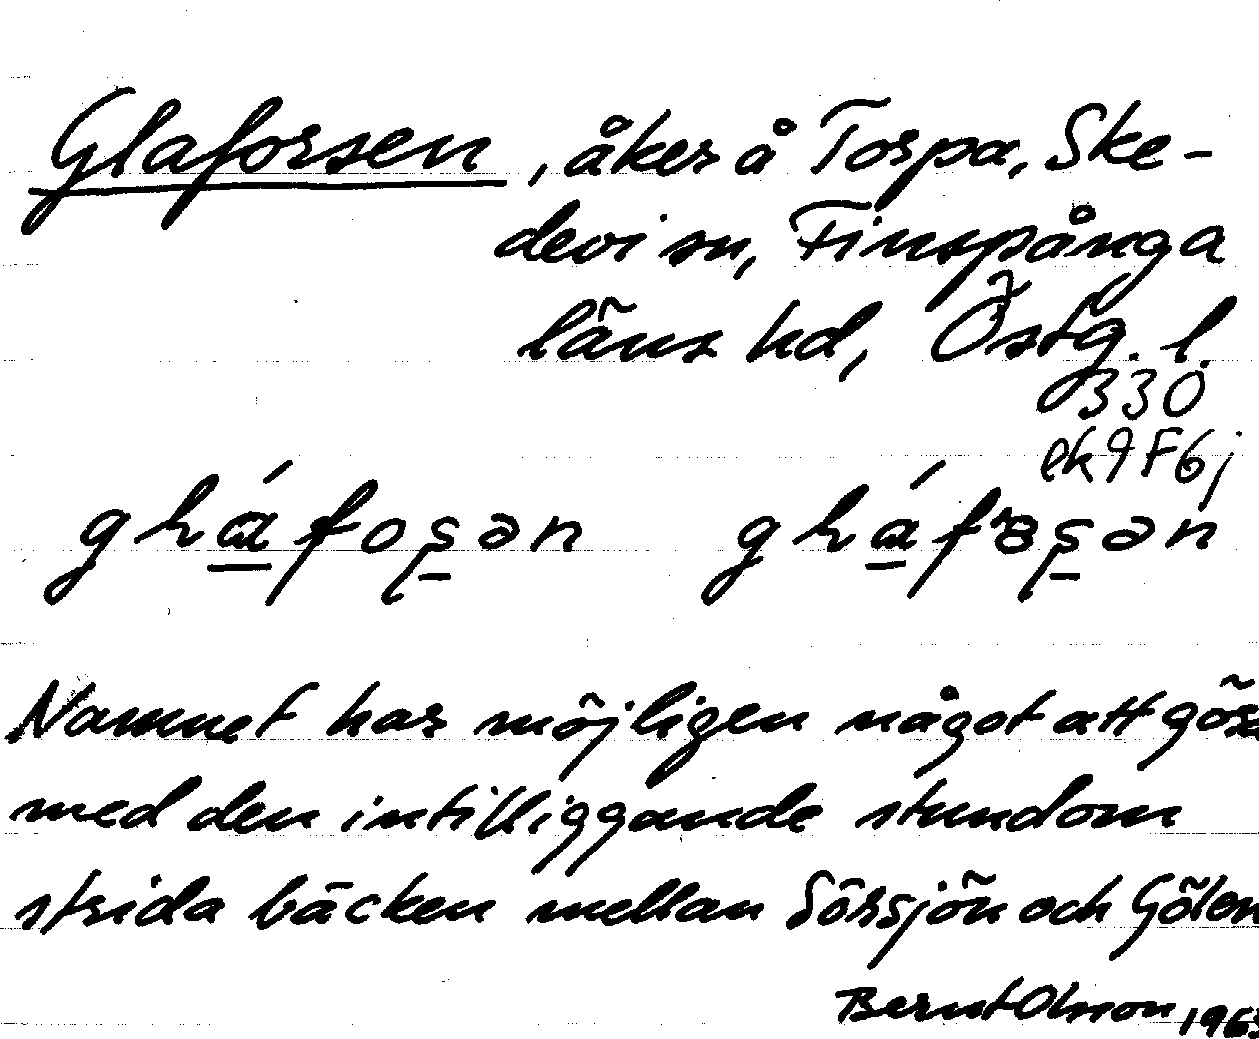 Glaforsen, åker å Torpa, Ske-
devi sn, Finspånga
läns hd, Östg. l.
330
ek 9F6j
Namnet har möjligen något att göra
med den intilliggande stundom
strida bäcken mellan Sörsjön och Gölen
Bernt Olsson